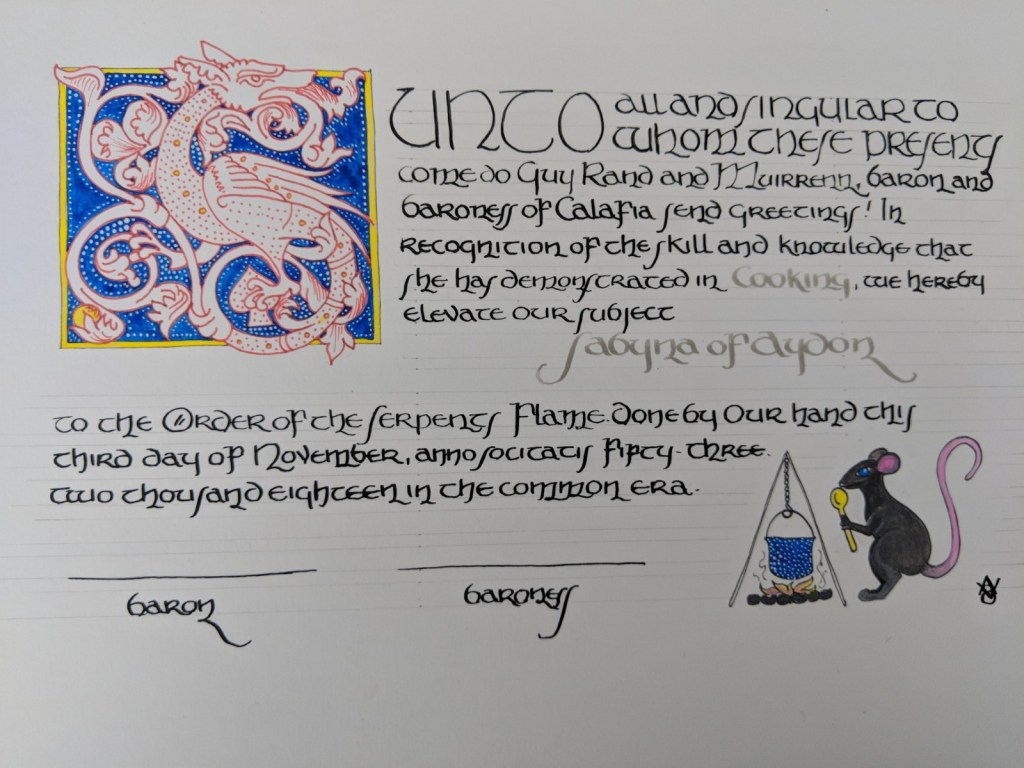 UNTO all and singular to
whom these presents
come do Guy Rand and Muirrenn, baron and
baroness of Calafia send greetings! In
recognition of the skill and knowledge that
she has demonstrated in Cooking, we hereby
elevate our subject
Sabyna of Aydon
to the Order of the Serpents Flame. done by Our hand this
third day of November, anno socitatis fifty-three.
two thousand eighteen in the common era.
baron
baroness